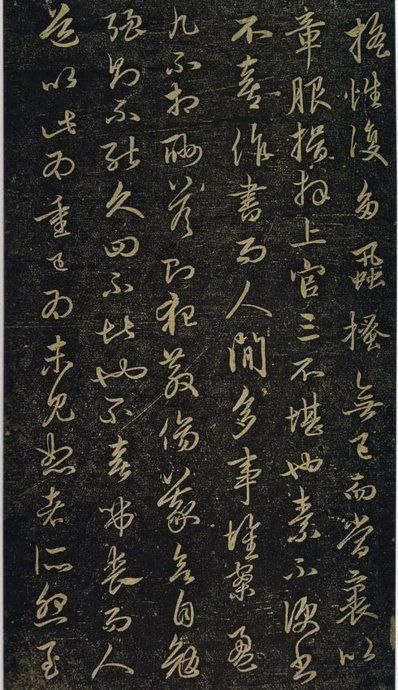 搖性復多蝨搔無已而當裹以
章服揖拜上官三不堪也素不便書
不喜作書而人間多事堆案盈
几不相酬答則犯教傷義欲自勉
強則不能久四不堪也不喜弔喪而人
道以此為重已為未見恕者所怨至